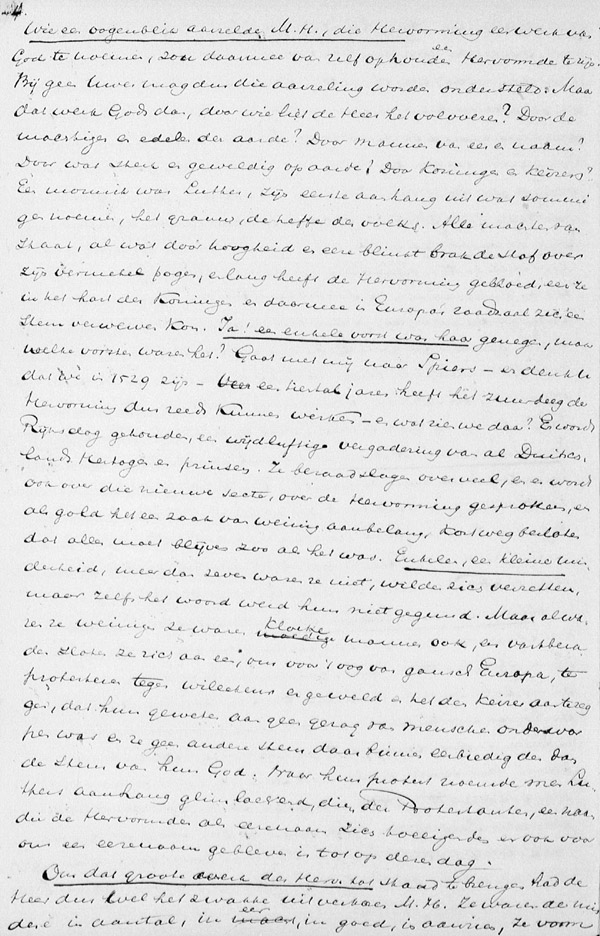 4.
Wie een oogenblik aarzelde, M.H., die Hervorming een werk van
God te noemen, zou daarmee van zelf ophouden een Hervormde te zijn.
Bij geen Uwer mag dus die aarzeling worden ondersteld. Maar
dat werk Gods dan, door wie liet de Heer het volvoeren? Door de
machtigen en edelen der aarde? Door mannen van eer en naam?
Door wat sterk en geweldig op aarde? Door Koningen en Keizers?
Een monnik was Luther, zijn eerste aanhang uit wat sommi
gen noemen, het grauw, de heffe des volks. Alle machten van
Staat, al wat door hoogheid en eer blinkt brak de staf over
zijn vermetel pogen, en lang heeft de Hervorming gebloed, eer ze
in het hart der Koningen en daarmee in Europa's raadzaal zich een
stem verwerven kon. Ja! een enkele vorst was haar genegen, maar
welke vorsten waren het? Gaat met mij naar Spiers – en denkt U
dat we in 1529 zijn – een tiental jaren heeft het zuurdeeg der
Hervorming dus reeds kunnen werken – en wat zien we daar? Er wordt
Rijksdag gehouden, een wijdluftige vergadering van al Duitsch-
lands Hertogen en prinsen. Ze beraadslagen over veel, en er wordt
ook over die nieuwe secte, over de Hervorming gesproken, en
als gold het een zaak van weinig aanbelang, kortweg besloten
dat alles moet blijven zoo als het was. Enkelen, een kleine min
derheid, meer dan zeven waren ze niet, wilden zich verzetten,
maar zelfs het woord werd hun niet gegund. Maar al wa
ren ze weinigen ze waren kloeke mannen ook, en vastbera
den sloten ze zich aaneen, om voor 't oog van gansch Europa, te
protesteren tegen willekeur en geweld en het den Keizer aan te zeg
gen, dat hun geweten aan geen gezag van menschen onderwor
pen was en ze geen andere stem daarbinnen eerbiedigden dan
de stem van hun God. Naar hun protest noemde men Lu
thers aanhang glimlachend, die der Protestanten, een naam
die de Hervormden als eerenaam zich toeeigenden en ook voor
ons een eerenaam gebleven is tot op dezen dag.
Om dat groote werk der Herv. tot stand te brengen had de
Heer dus wel het zwakke uitverkoren M.H. Ze waren de min
dere in aantal, in eer, in goed, in aanzien, ze vorm